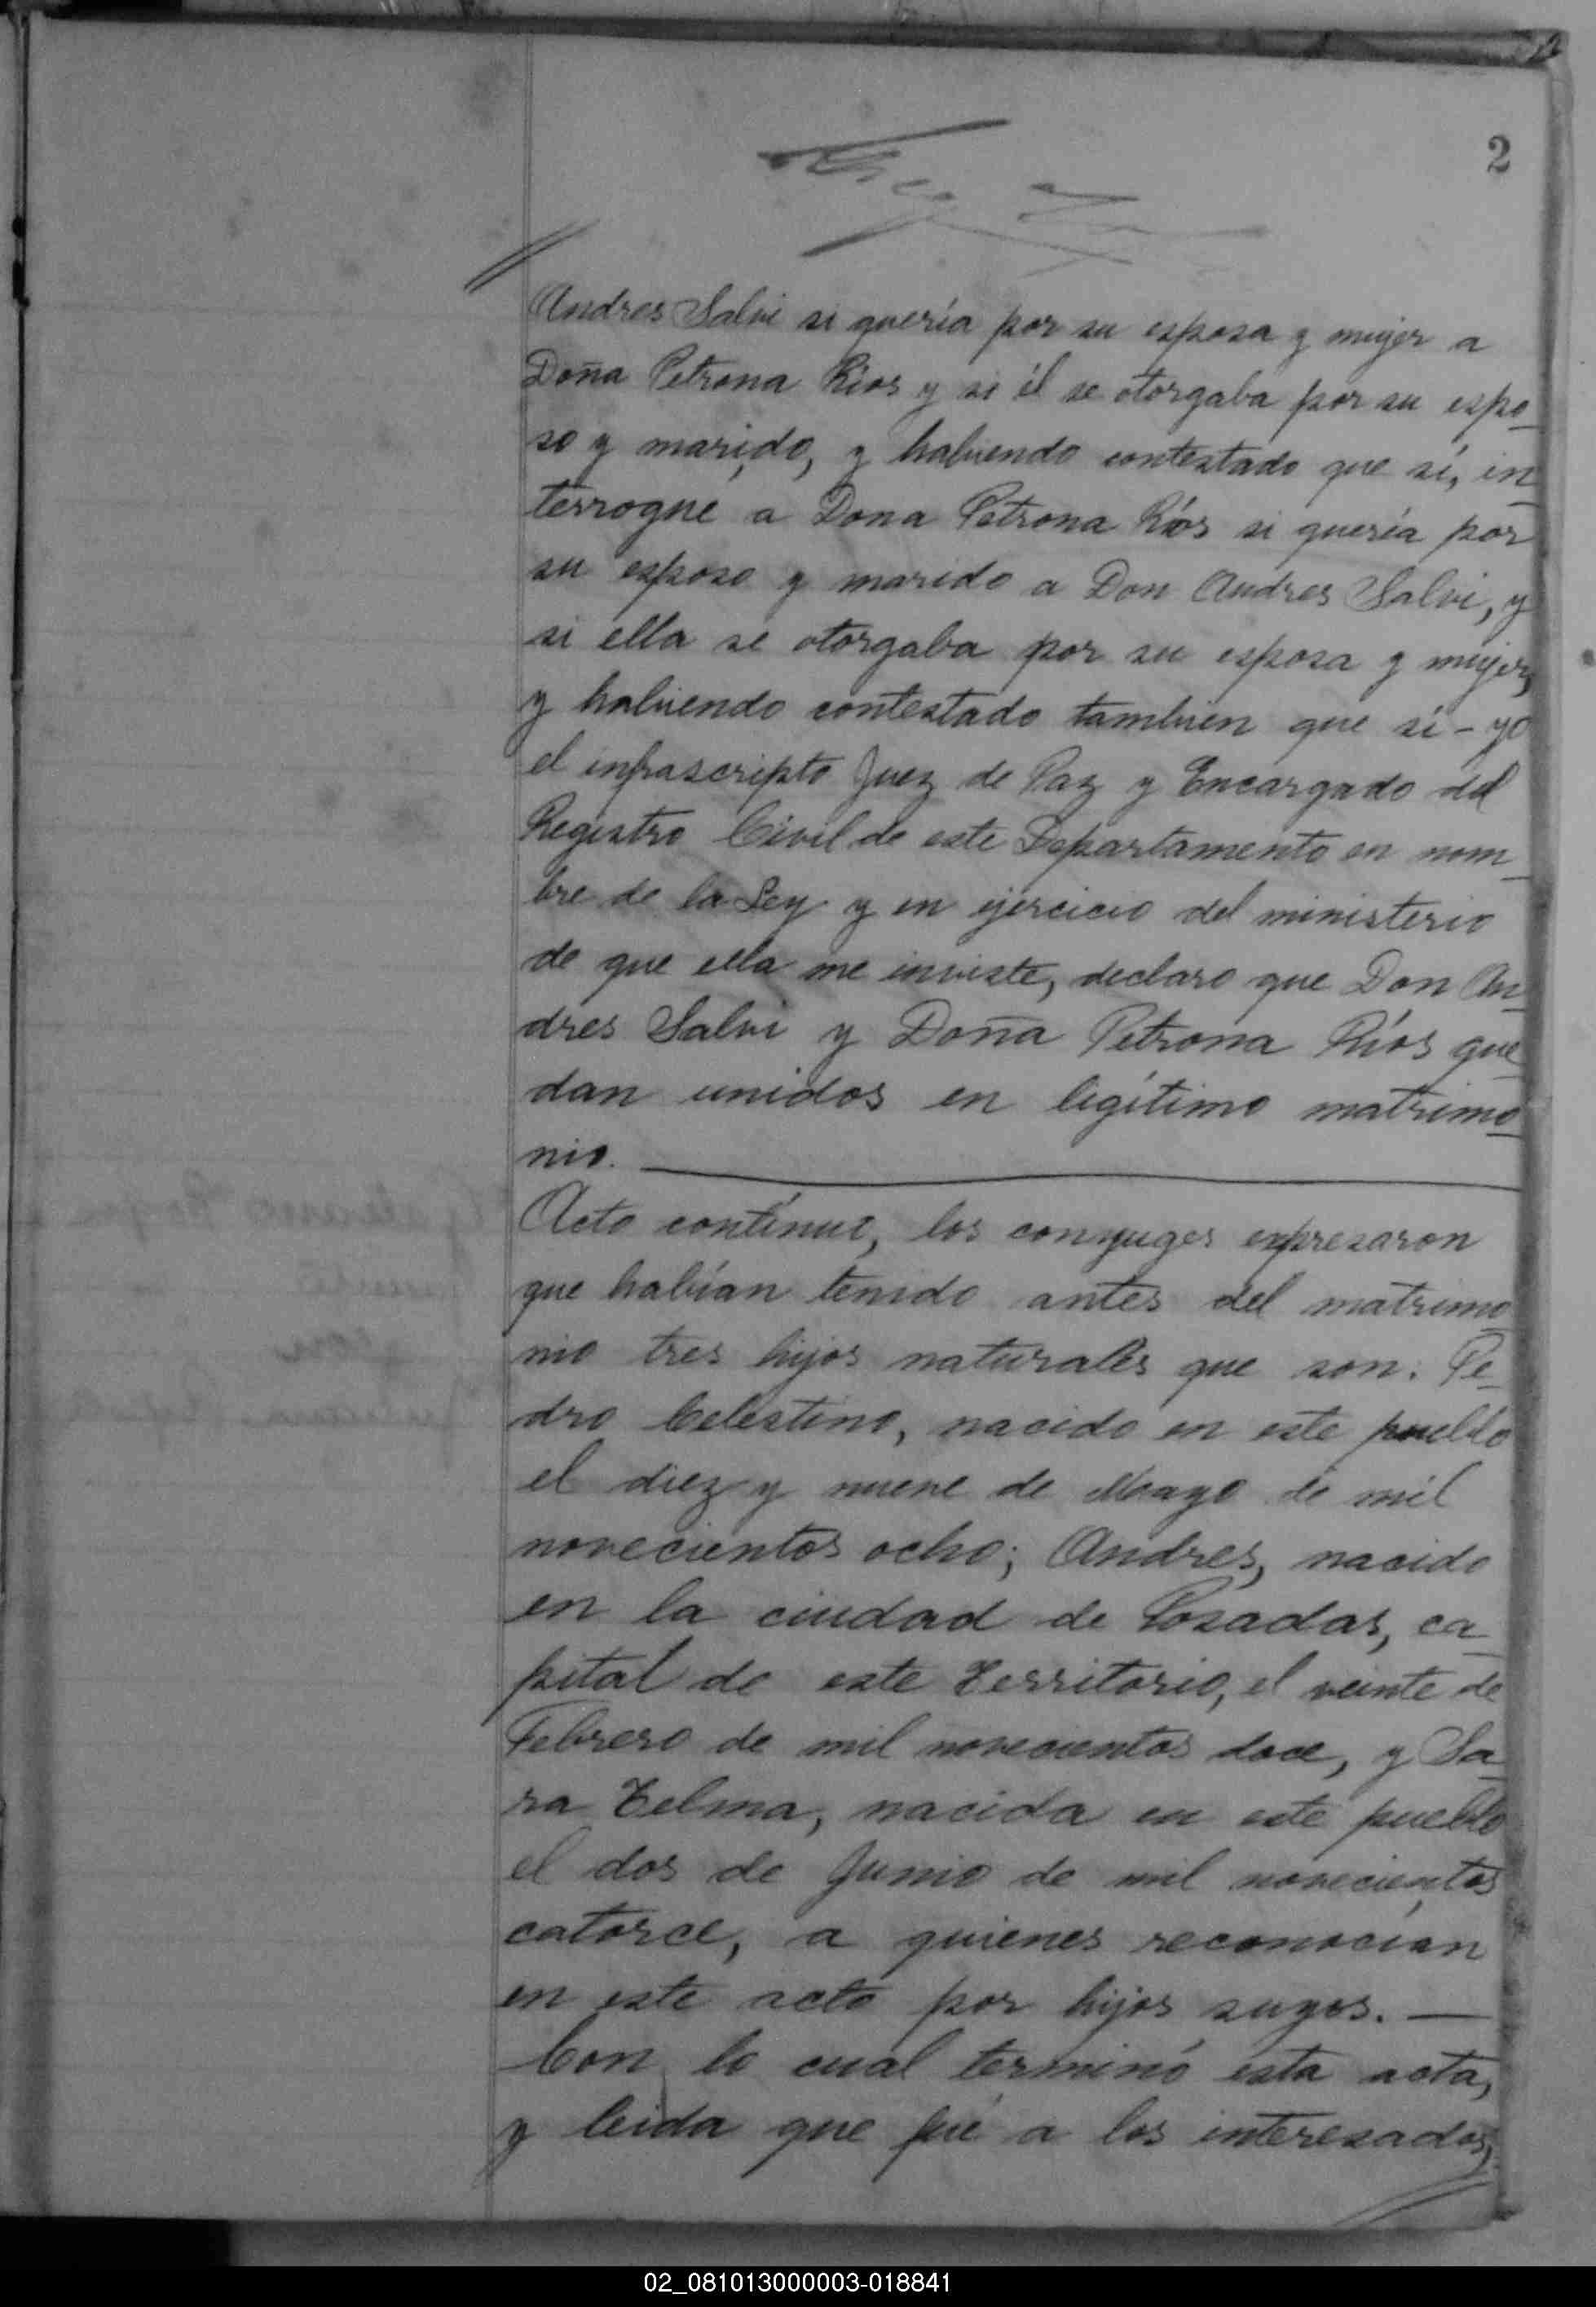 2
Andres Salvi si quería por su esposa y mujer a
Doña Petrona Ríos y si él se otorgaba por su espo_
so y marido, y habiendo contestado que sí, in_
terrogue a Dona Petrona Ríos si quería por
su esposo y marido a Don Andres Salvi, y
si ella se otorgaba por su esposa y mujer,
y habiendo contestado tambien que si - yo
el infrascripto Juez de Paz y Encargado del
Registro Civil de este Departamento en nom_
bre de la Ley y en ejercicio del ministerio
de que ella me inviste, declaro que Don An_
dres Salvi y Doña Petrona Ríos que_
dan unidos en legítimo matrimo_
nio.
Acto contínuo, los conyuges expresaron
que habían tenido antes del matrimo_
nio tres hijos naturales que son: Pe_
dro Celestino, nacido en este pueblo
el diez y nueve de Mayo de mil
novecientos ocho; Andres, nacido
en la ciudad de Posadas, ca_
pital de este Territorio, el veinte de
Febrero de mil novecientos doce, y Sa_
ra Telma, nacida en este pueblo
el dos de Junio de mil novecientos
catorce, a quienes reconocían
en este acto por hijos suyos. —
Con lo cual terminó esta acta,
y leida que fué a los interesados,
02_081013000003-018841